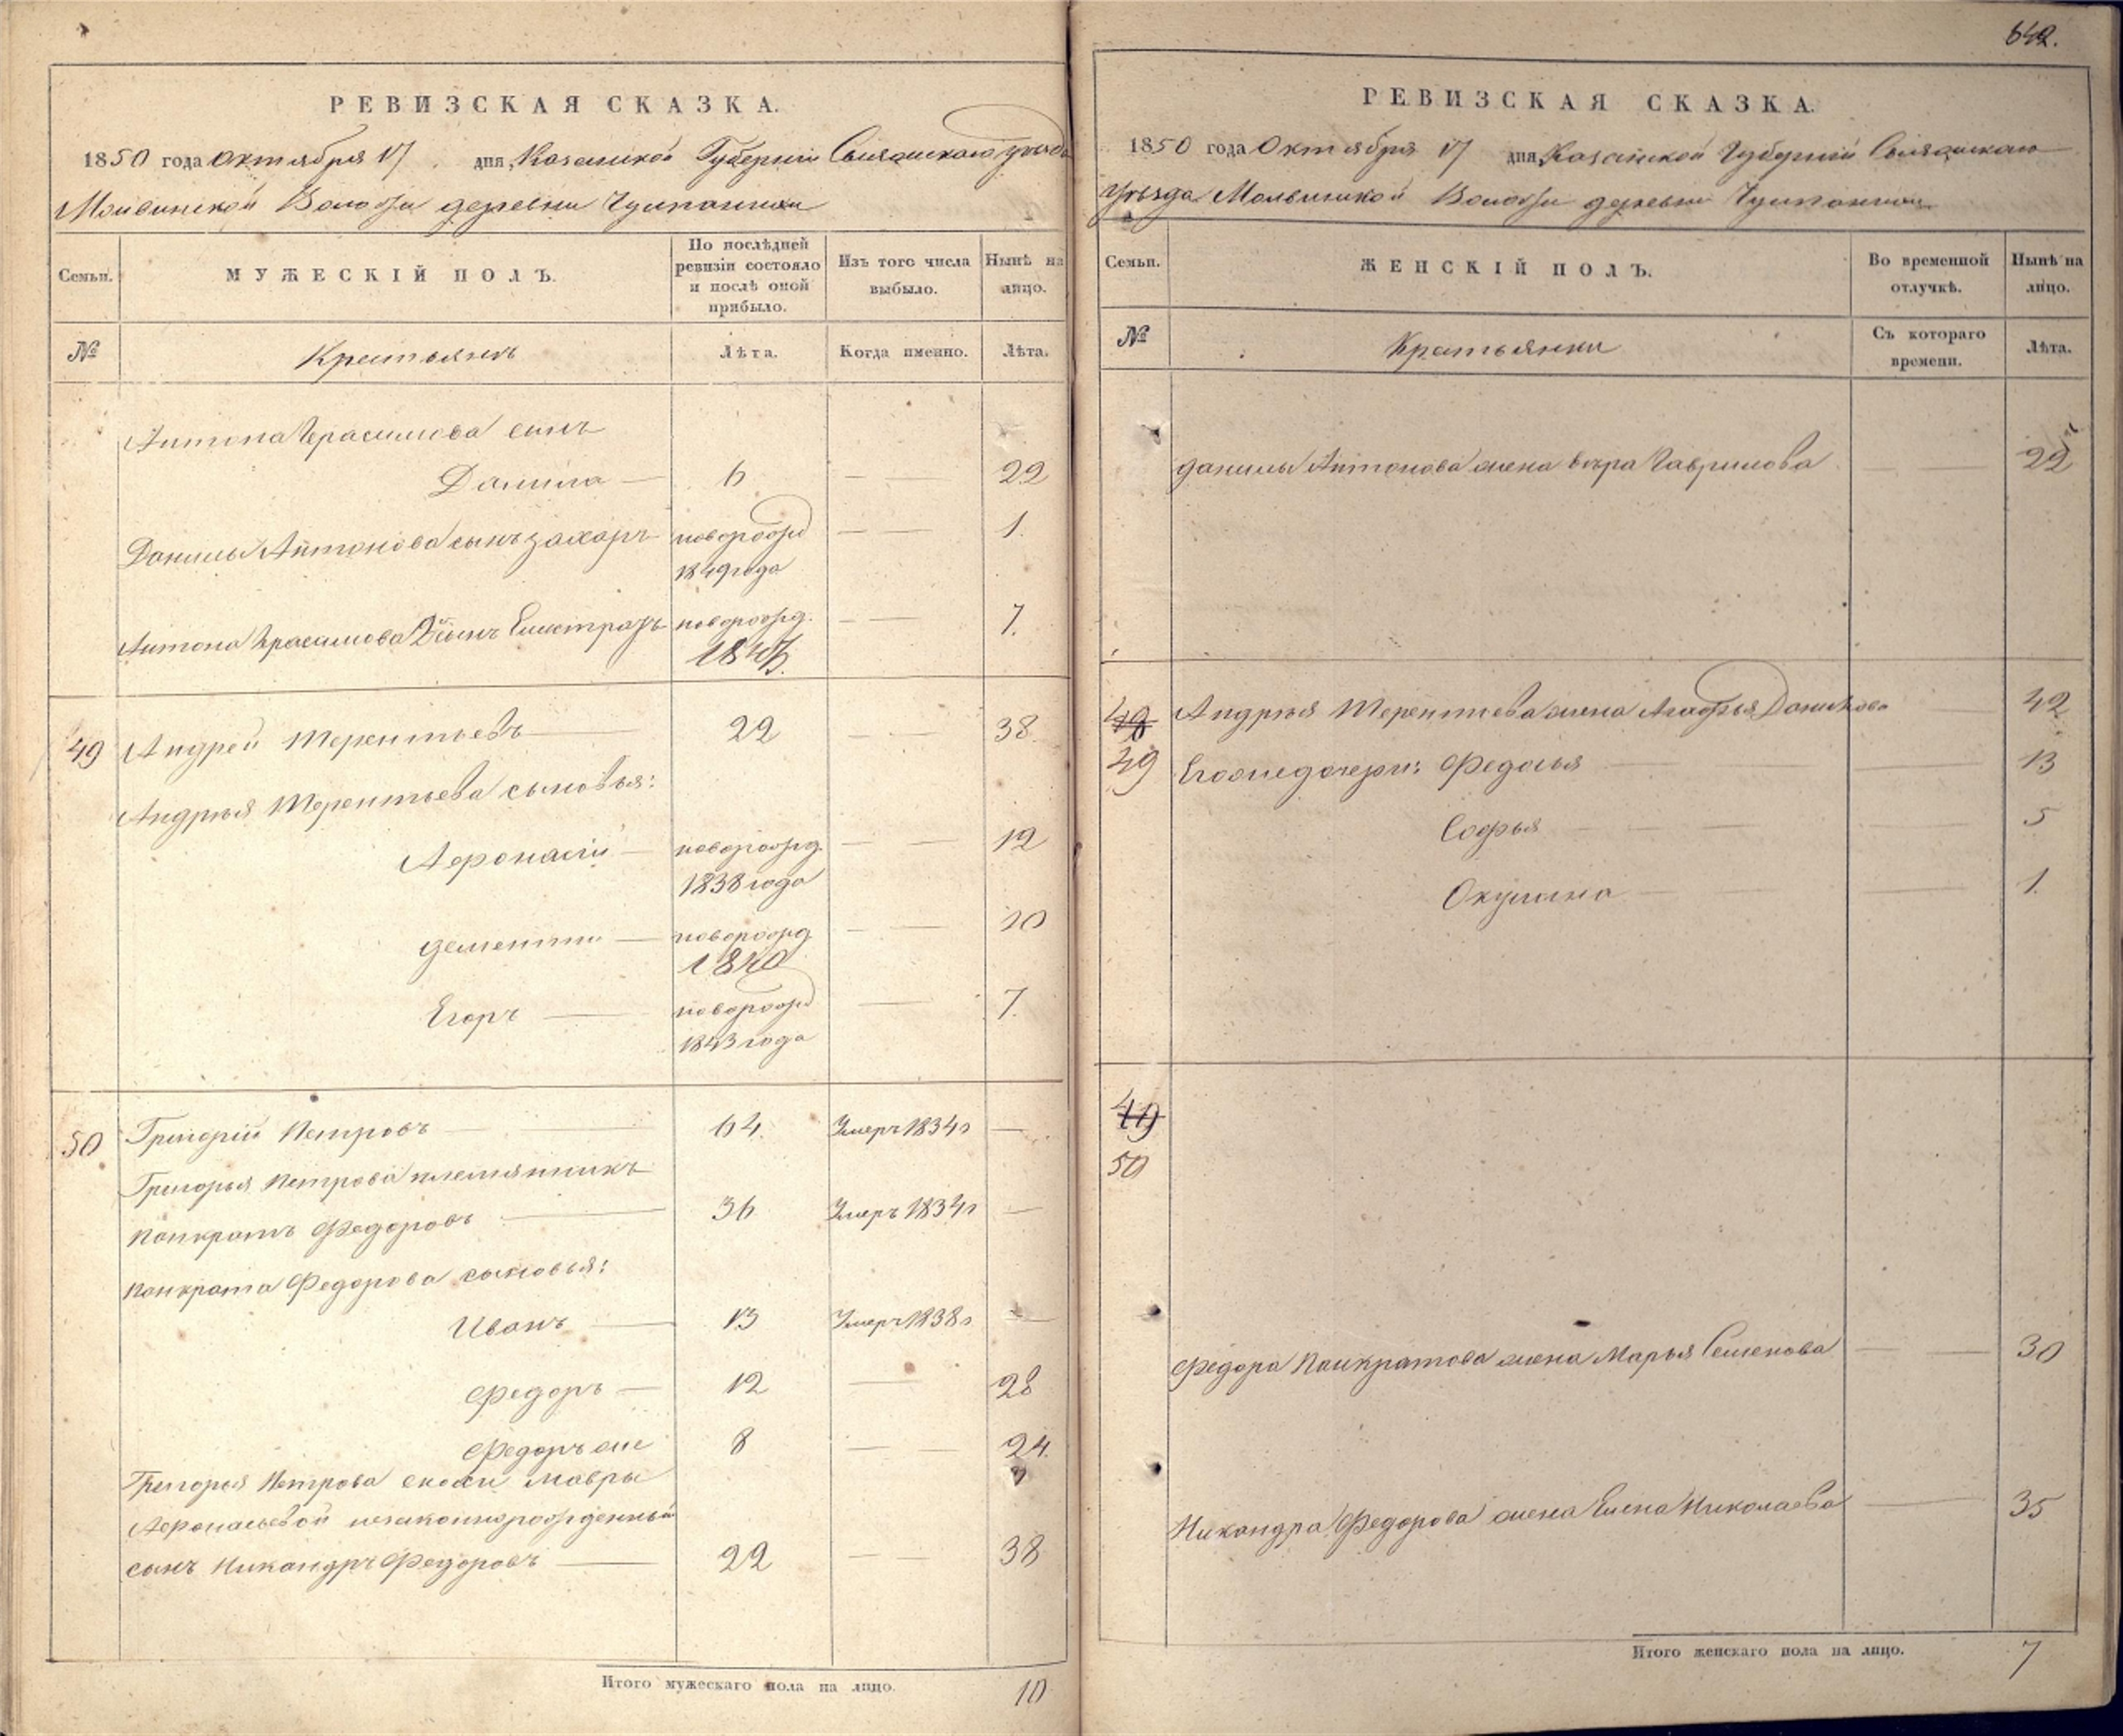 РЕВИЗСКАЯ СКАЗКА.
1850 года Октября 17 дня, Казанской Губернии Свияжскаго уезда
Молвинской Волости деревни
Семьи. МУЖЕСКІЙ ПОЛЪ. По послѣдней ревизіи состояло и послѣ оной прибыло. Изъ того числа выбыло. Нынѣ на лицо.
№ Крестьянъ Лѣта. Когда именно. Лѣта.
Антона Герасимова сынъ
Данила 6 22
Данилы Антонова сынъ Захаръ новорожд 1
1849 года
Антона Герасимова 2й сынъ новорожд. 7.
1843.
49 Андрей Терентьевъ 22 38.
Андрея Терентьева сыновья:
Афонасій новорожд. 12
1838 года
Дементий новорожд 10
1840
Егоръ новорожд 7.
1843 года
50 Григорій Петровъ 64. Умеръ 1834 г
Григорья Петрова племянникъ
Панкратъ Федоровъ 36 Умеръ 1834 г
Панкрата Федорова сыновья:
Иванъ 13 Умеръ 1838 г
Федоръ 12 28
Федоръ же 8 24.
Григорья Петрова снохи Мавры
Афонасьевой незаконнорожденный
сынъ Никандръ Федоровъ 22 38
Итого мужескаго пола на лицо. 10
642.
РЕВИЗСКАЯ СКАЗКА.
1850 года Октября 17 дня, Казанской Губерніи Свияжскаго
Уезда Молвинской Волости деревни
Семьи. ЖЕНСКІЙ ПОЛЪ. Во временной отлучкѣ. Нынѣ на лицо.
№ Крестьянки Съ котораго времени. Лѣта.
Данилы Антонова жена Вера Гаврилова 22
48 Андрея Терентьева жена Агафья Данилова 42
49 Его же дочери: Федосья 13
Софья 5
Окулина 1.
49
50
Федора Панкратова жена Марья Семенова 30
Никандра Федорова жена Елена Николаева 35
Итого женскаго пола на лицо. 7